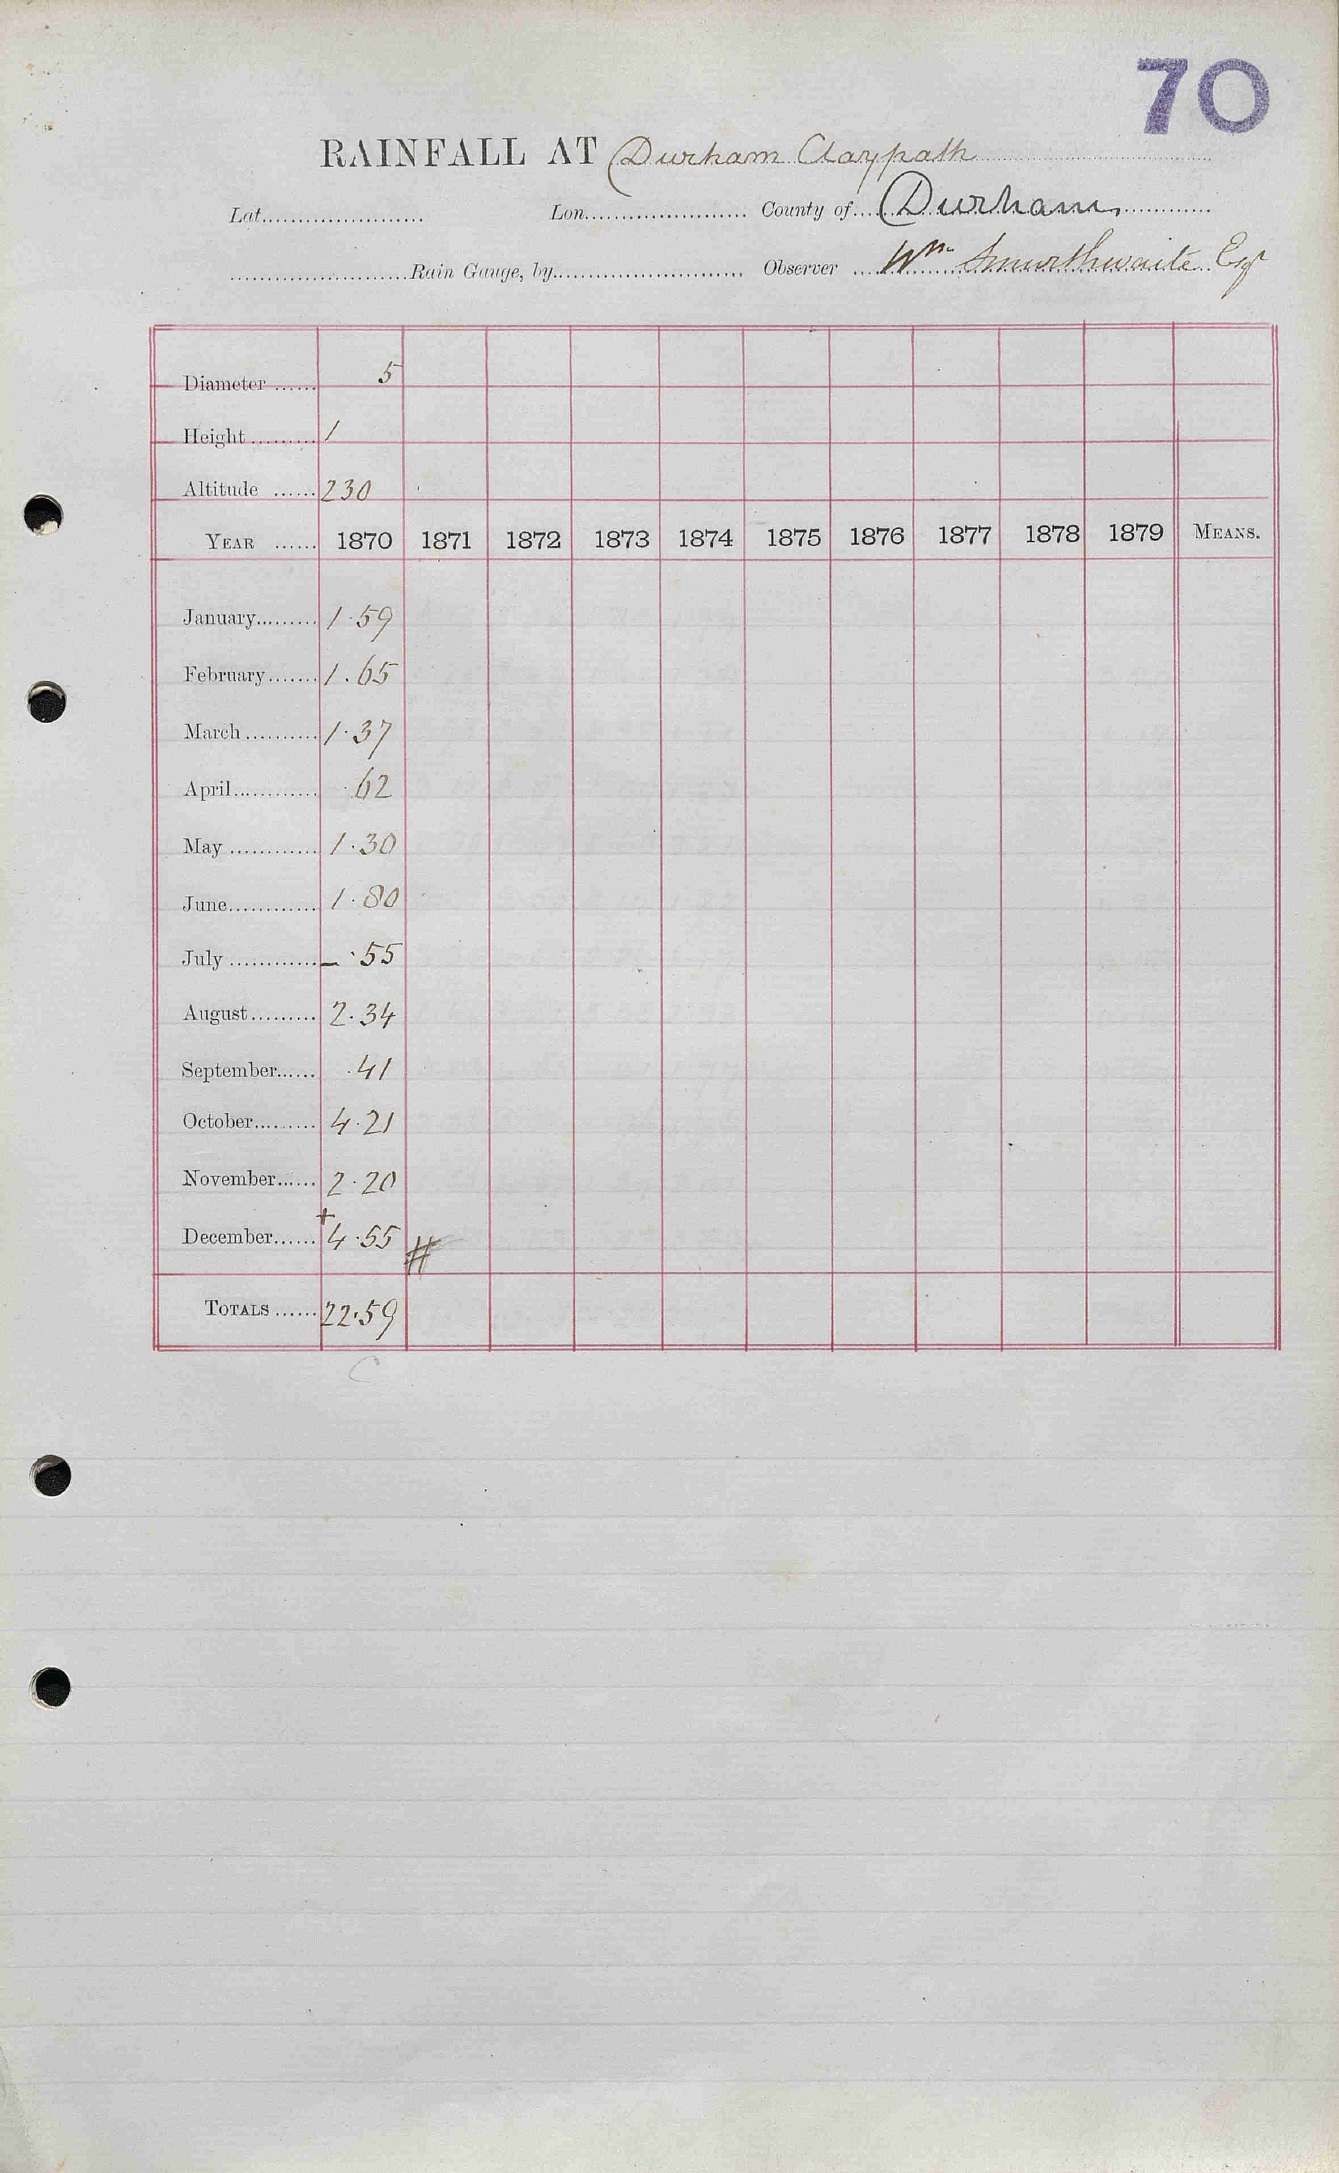 70
RAINFALL AT Durham Claypath
Lat...................... Lon...................... County of Durham
......................Rain Gauge, by.......................... Observer Wm Smurthwaite Esqr
Diameter ...... 5
Height......... 1
Altitude ...... 230
YEAR ...... 1870 1871 1872 1873 1874 1875 1876 1877 1878 1879 MEANS.
January......... 1.59
February....... 1.65
March.......... 1.37
April............ .62
May ............ 1.30
June............ 1.80
July ............ – .55
August......... 2.34
September...... .41
October......... 4.21
November...... 2.20
December...... + 4.55 #
TOTALS ...... 22.59
C